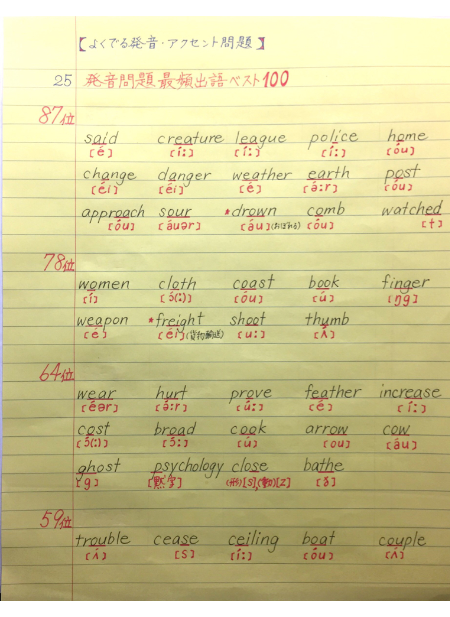 【よくでる発音・アクセント問題】
25 発音問題最頻出語ベスト100
87位
said creature league police home
[é] [í:] [í:] [í:] [óu]
change danger weather earth post
[éi] [éi] [é] [ə́:r] [óu]
approach sour *drown comb watched
[óu] [áuər] [áu](おぼれる) [óu] [t]
78位
women cloth coast book finger
[í] [ɔ́(:)] [óu] [ú] [ŋg]
weapon *freight shoot thumb
[é] [éi](貨物輸送) [u:] [ʌ́]
64位
wear hurt prove feather increase
[éər] [ə́:r] [ú:] [é] [í:]
cost broad cook arrow cow
[ɔ́(:)] [ɔ́:] [ú] [ou] [áu]
ghost psychology close bathe
[g] [黙字] (形)[s],(動)[z] [ð]
59位
trouble cease ceiling boat couple
[ʌ́] [s] [í:] [óu] [ʌ́]